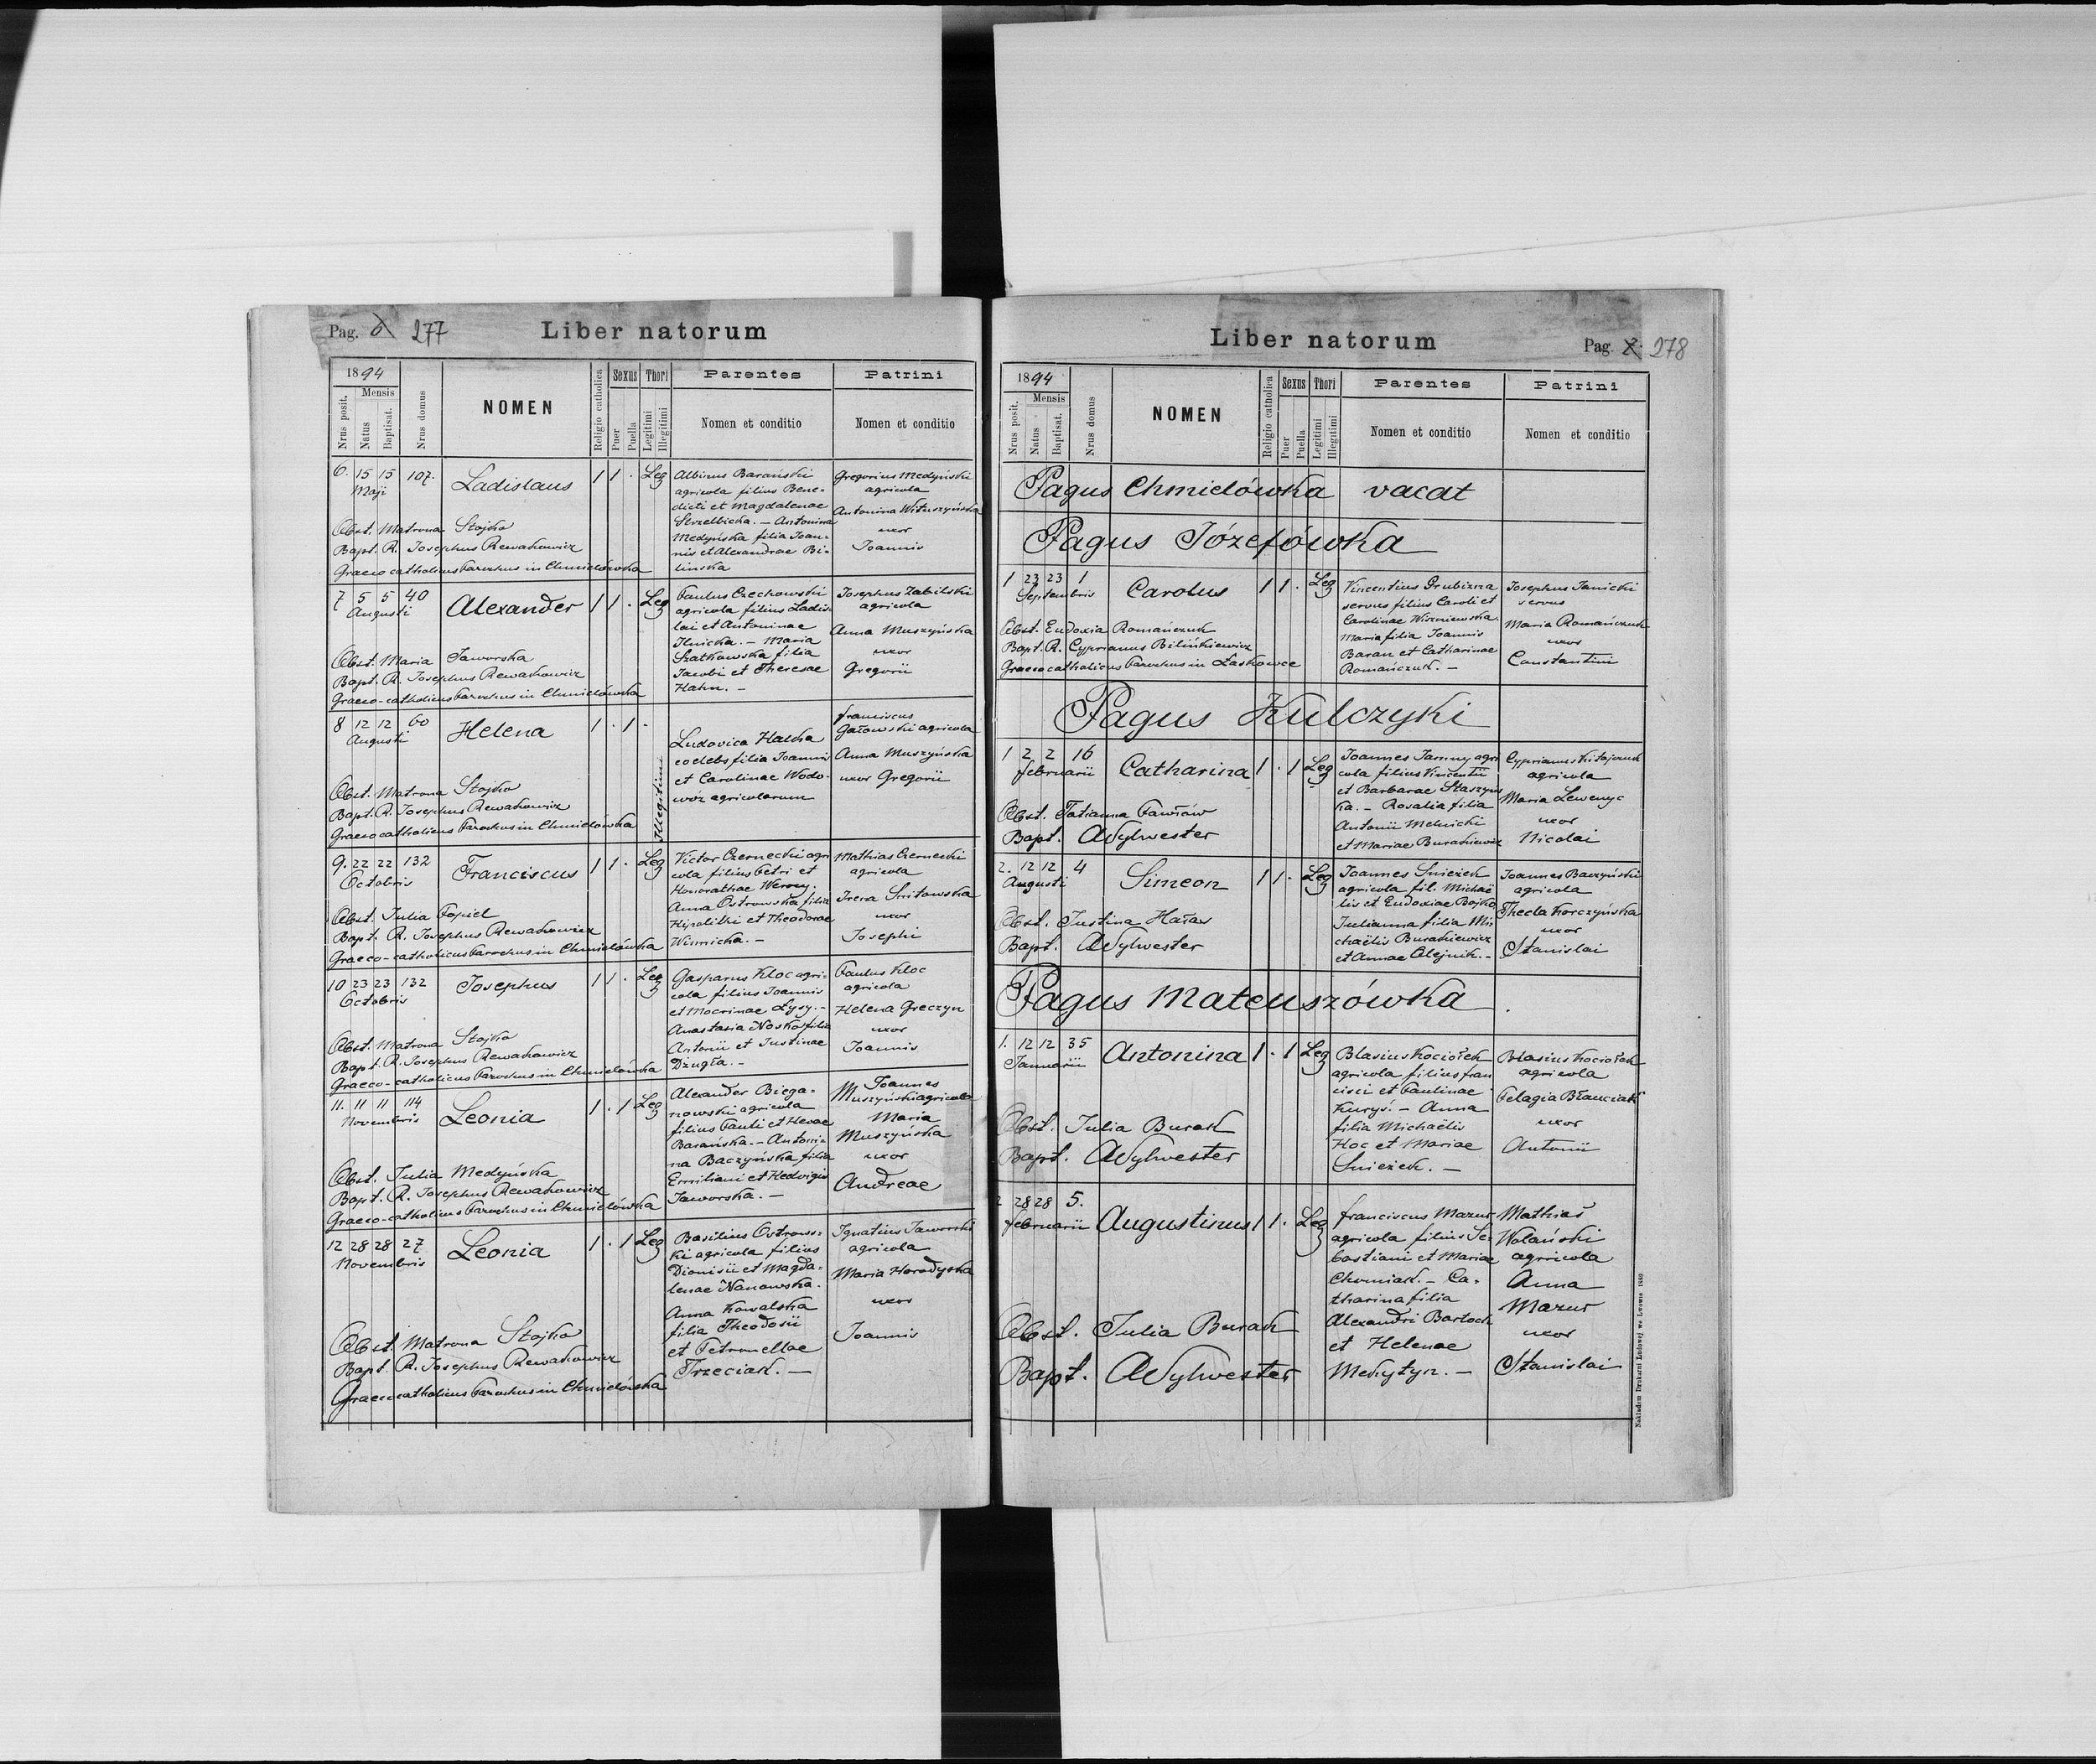 Pag. 277
Liber natorum
1894
Nrus posit.
Mensis
Natus
Baptisat.
Nrus domus
NOMEN
Religio catholica
Sexus
Puer
Puella
Thori
Legitimi
Illegitimi
Parentes
Nomen et conditio
Patrini
Nomen et conditio
6. 15 15 107.
Maji
Ladislaus
1 1 . Leg
Albinus Barański
agricola filius Bene-
dicti et Magdalenae
Strzelbicka. – Antonina
Medyńska filia Joan-
nis et Alexandrae Bi-
linska
Gregorius Medyński
agricola
Antonina Wituszyńska
uxor
Joannis
Obst. Matrona Stojko
Bapt. R. Josephus Rewakowicz
Graeco catholicus Parochus in Chmielówka
7 5 5 40
Augusti
Alexander
1 1 . Leg
Paulus Czechowski
agricola filius Ladis-
lai et Antoninae
Ilnicka. – Maria
Szatkowska filia
Jacobi et Theresae
Hahn. –
Josephus Zabilski
agricola
Anna Muszyńska
uxor
Gregorii
Obst. Maria Jaworska
Bapt. R. Josephus Rewakowicz
Graeco-catholicus Parochus in Chmielówka
8 12 12 60
Augusti
Helena
1 . 1 .
Illegitimi
Ludovica Halka
coelebs filia Joannis
et Carolinae Wodo-
wóz agricolarum
Franciscus
Gaźowski agricola
Anna Muszyńska
uxor Gregorii
Obst. Matrona Stojko
Bapt. R. Josephus Rewakowicz
Graeco catholicus Parochus in Chmielówka
9. 22 22 132
Octobris
Franciscus
1 1 . Leg
Victor Czernecki agri
cola filius Petri et
Honorathae Werony.
Anna Ostrowska filia
Hipolitki et Theodorae
Wisnicka. –
Mathias Czernecki
agricola
Irena Snitowska
uxor
Josephi
Obst. Julia Popiel
Bapt. R. Josephus Rewakowicz
Graeco-catholicus Parochus in Chmielówka
10 23 23 132
Octobris
Josephus
1 1 . Leg
Gasparus Kloc agri-
cola filius Joannis
et Mocrinae Łysy. –
Anastasia Nosko filia
Antonii et Justinae
Dzugła. –
Paulus Kloc
agricola
Helena Greczyn
uxor
Joannis
Obst. Matrona Stojko
Bapt. R. Josephus Rewakowicz
Graeco-catholicus Parochus in Chmielówka
11. 11 11 114
Novembris
Leonia
1 . 1 Leg
Alexander Biega-
nowski agricola
filius Pauli et Hevae
Barańska. – Antoni-
na Baczyńska filia
Emiliani et Hedvigis
Jaworska. –
Joannes
Muszyński agricola
Maria
Muszyńska
uxor
Andreae
Obst. Julia Medyńska
Bapt. R. Josephus Rewakowicz
Graeco-catholicus Parochus in Chmielówka
12 28 28 27
Novembris
Leonia
1 . 1 Leg
Basilius Ostrows-
ki agricola filius
Dionisii et Magda-
lenae Nanowska.
Anna Kowalska
filia Theodosii
et Petronellae
Trzeciak. –
Ignatius Jaworski
agricola
Maria Horodyska
uxor
Joannis
Obst. Matrona Stojko
Bapt. R. Josephus Rewakowicz
Graeco catholicus Parochus in Chmielówka
Liber natorum
Pag. 278
1894
Nrus posit.
Mensis
Natus
Baptisat.
Nrus domus
NOMEN
Religio catholica
Sexus
Puer
Puella
Thori
Legitimi
Illegitimi
Parentes
Nomen et conditio
Patrini
Nomen et conditio
Pagus Chmielówka vacat
Pagus Józefówka
1 23 23 1
Septembris
Carolus
1 1 . Leg
Vincentius Drubizna
servus filius Caroli et
Carolinae Wiszniewska.
Maria filia Joannis
Baran et Catharinae
Romańczuk. –
Josephus Janicki
servus
Maria Romańczuk
uxor
Constantini
Obst. Eudoxia Romańczuk
Bapt. R. Cyprianus Bilińkiewicz
Graeco catholicus Parochus in Laskowce
Pagus Kulczyki
1 2 2 16
Februarii
Catharina
1 . 1 Leg
Joannes Jamny agri
cola filius Vincentii
et Barbarae Staszyns
ka. – Rosalia filia
Antonii Melnicki
et Mariae Burakiewicz
Cyprianus Kitajczuk
agricola
Maria Lewenyc
uxor
Nicolai
Obst. Tatianna Pawłów
Bapt. A Sylwester
2. 12 12 4
Augusti
Simeon
1 1 . Leg
Joannes Snieżek
agricola fil. Michaë
lis et Eudoxiae Bojko
Julianna filia Mi
chaëlis Burakiewicz
et Annae Olejnik. –
Joannes Baczyński
agricola
Thecla Korczyńska
uxor
Stanislai
Obst. Justina Hałas
Bapt. A Sylwester
Pagus Mateuszówka
1. 12 12 35
Januarii
Antonina
1 . 1 Leg
Blasius Kociołek
agricola filius Fran
cisci et Paulinae
Kuryś. – Anna
filia Michaëlis
Hoc et Mariae
Snieżek. –
Blasius Kociołek
agricola
Pelagia Błauciak
uxor
Antonii
Obst. Julia Burak
Bapt. A Sylwester
2 28 28 5.
Februarii
Augustinus
1 1 . Leg
Franciscus Mazur
agricola filius Se-
bastiani et Mariae
Chomiak. – Ca-
tharina filia
Alexandri Bartoch
et Helenae
Mekytyn. –
Mathias
Wolański
agricola
Anna
Mazur
uxor
Stanislai
Obst. Julia Burak
Bapt. A Sylwester
Nakładem Drukarni Ludowej we Lwowie 1889